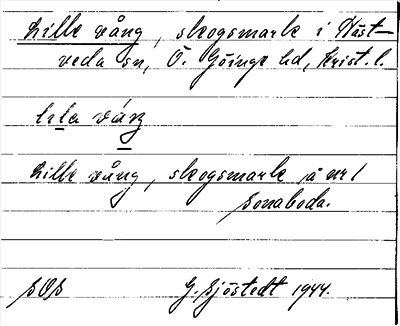 Lille vång, skogsmark i Häst-
veda sn, Ö. Göinge hd, Krist. l.
lila våŋ
Lille vång, skogsmark å nr 1
Sonaboda.
SOS G. Sjöstedt 1944.